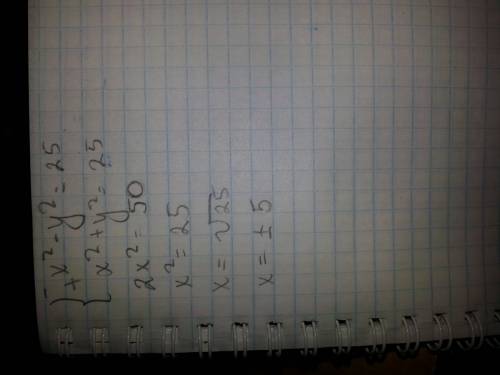 {+x² - y² = 25
x² + y² = 25
2x² = 50
x² = 25
x = √25
x = ± 5